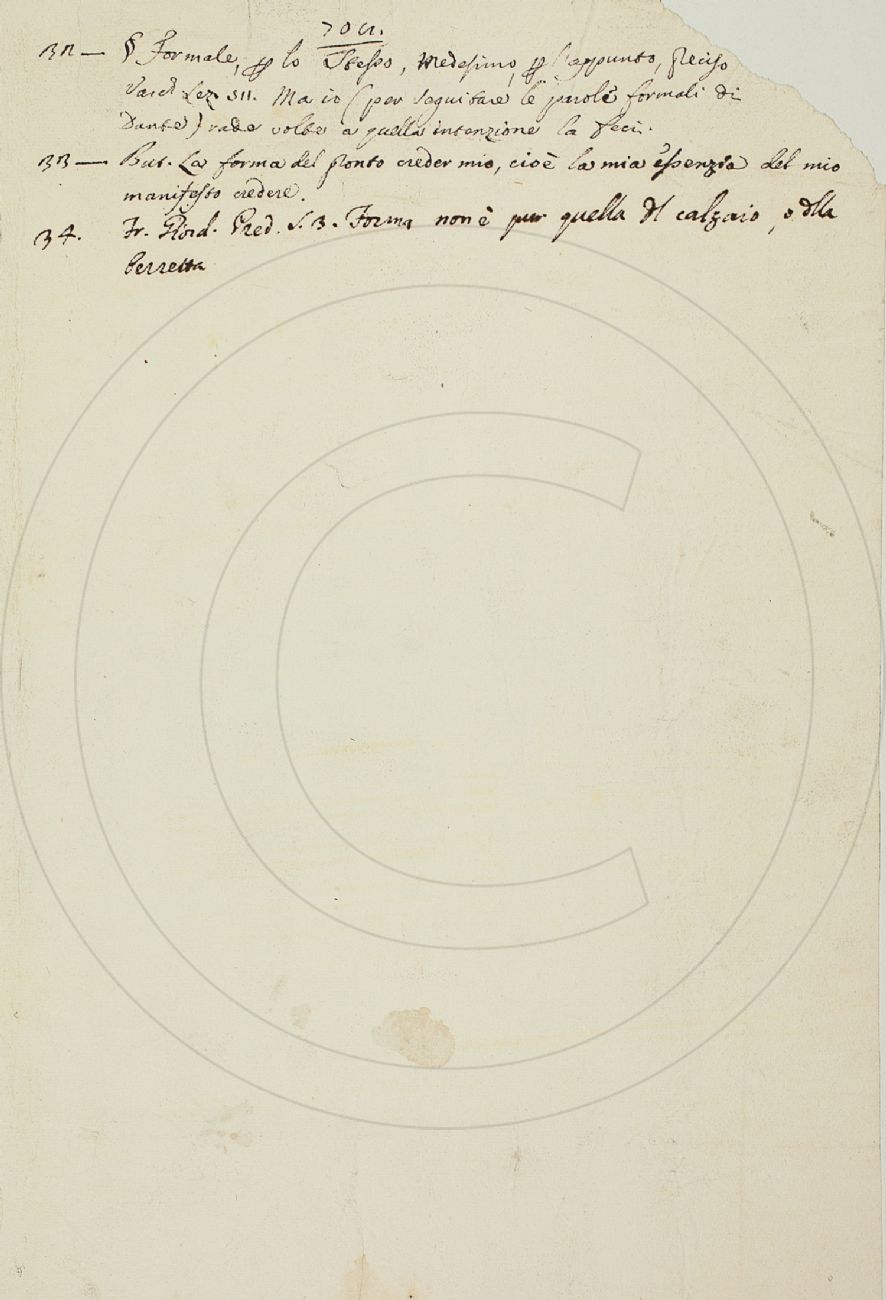 32 — § Formale, per lo Stesso, Medesimo, per l'appunto, preciso
Varch. Lez. 511. Ma io (per seguitare le parole formali di
Dante) rade volte a quella intenzione la feci.
33 — But. La forma del pronto creder mio, cioè la mia essenzia del mio
manifesto credere.
34. Fr. Giord. Pred. S. 3. Forma non è pur quella del calzaio, o della
berretta